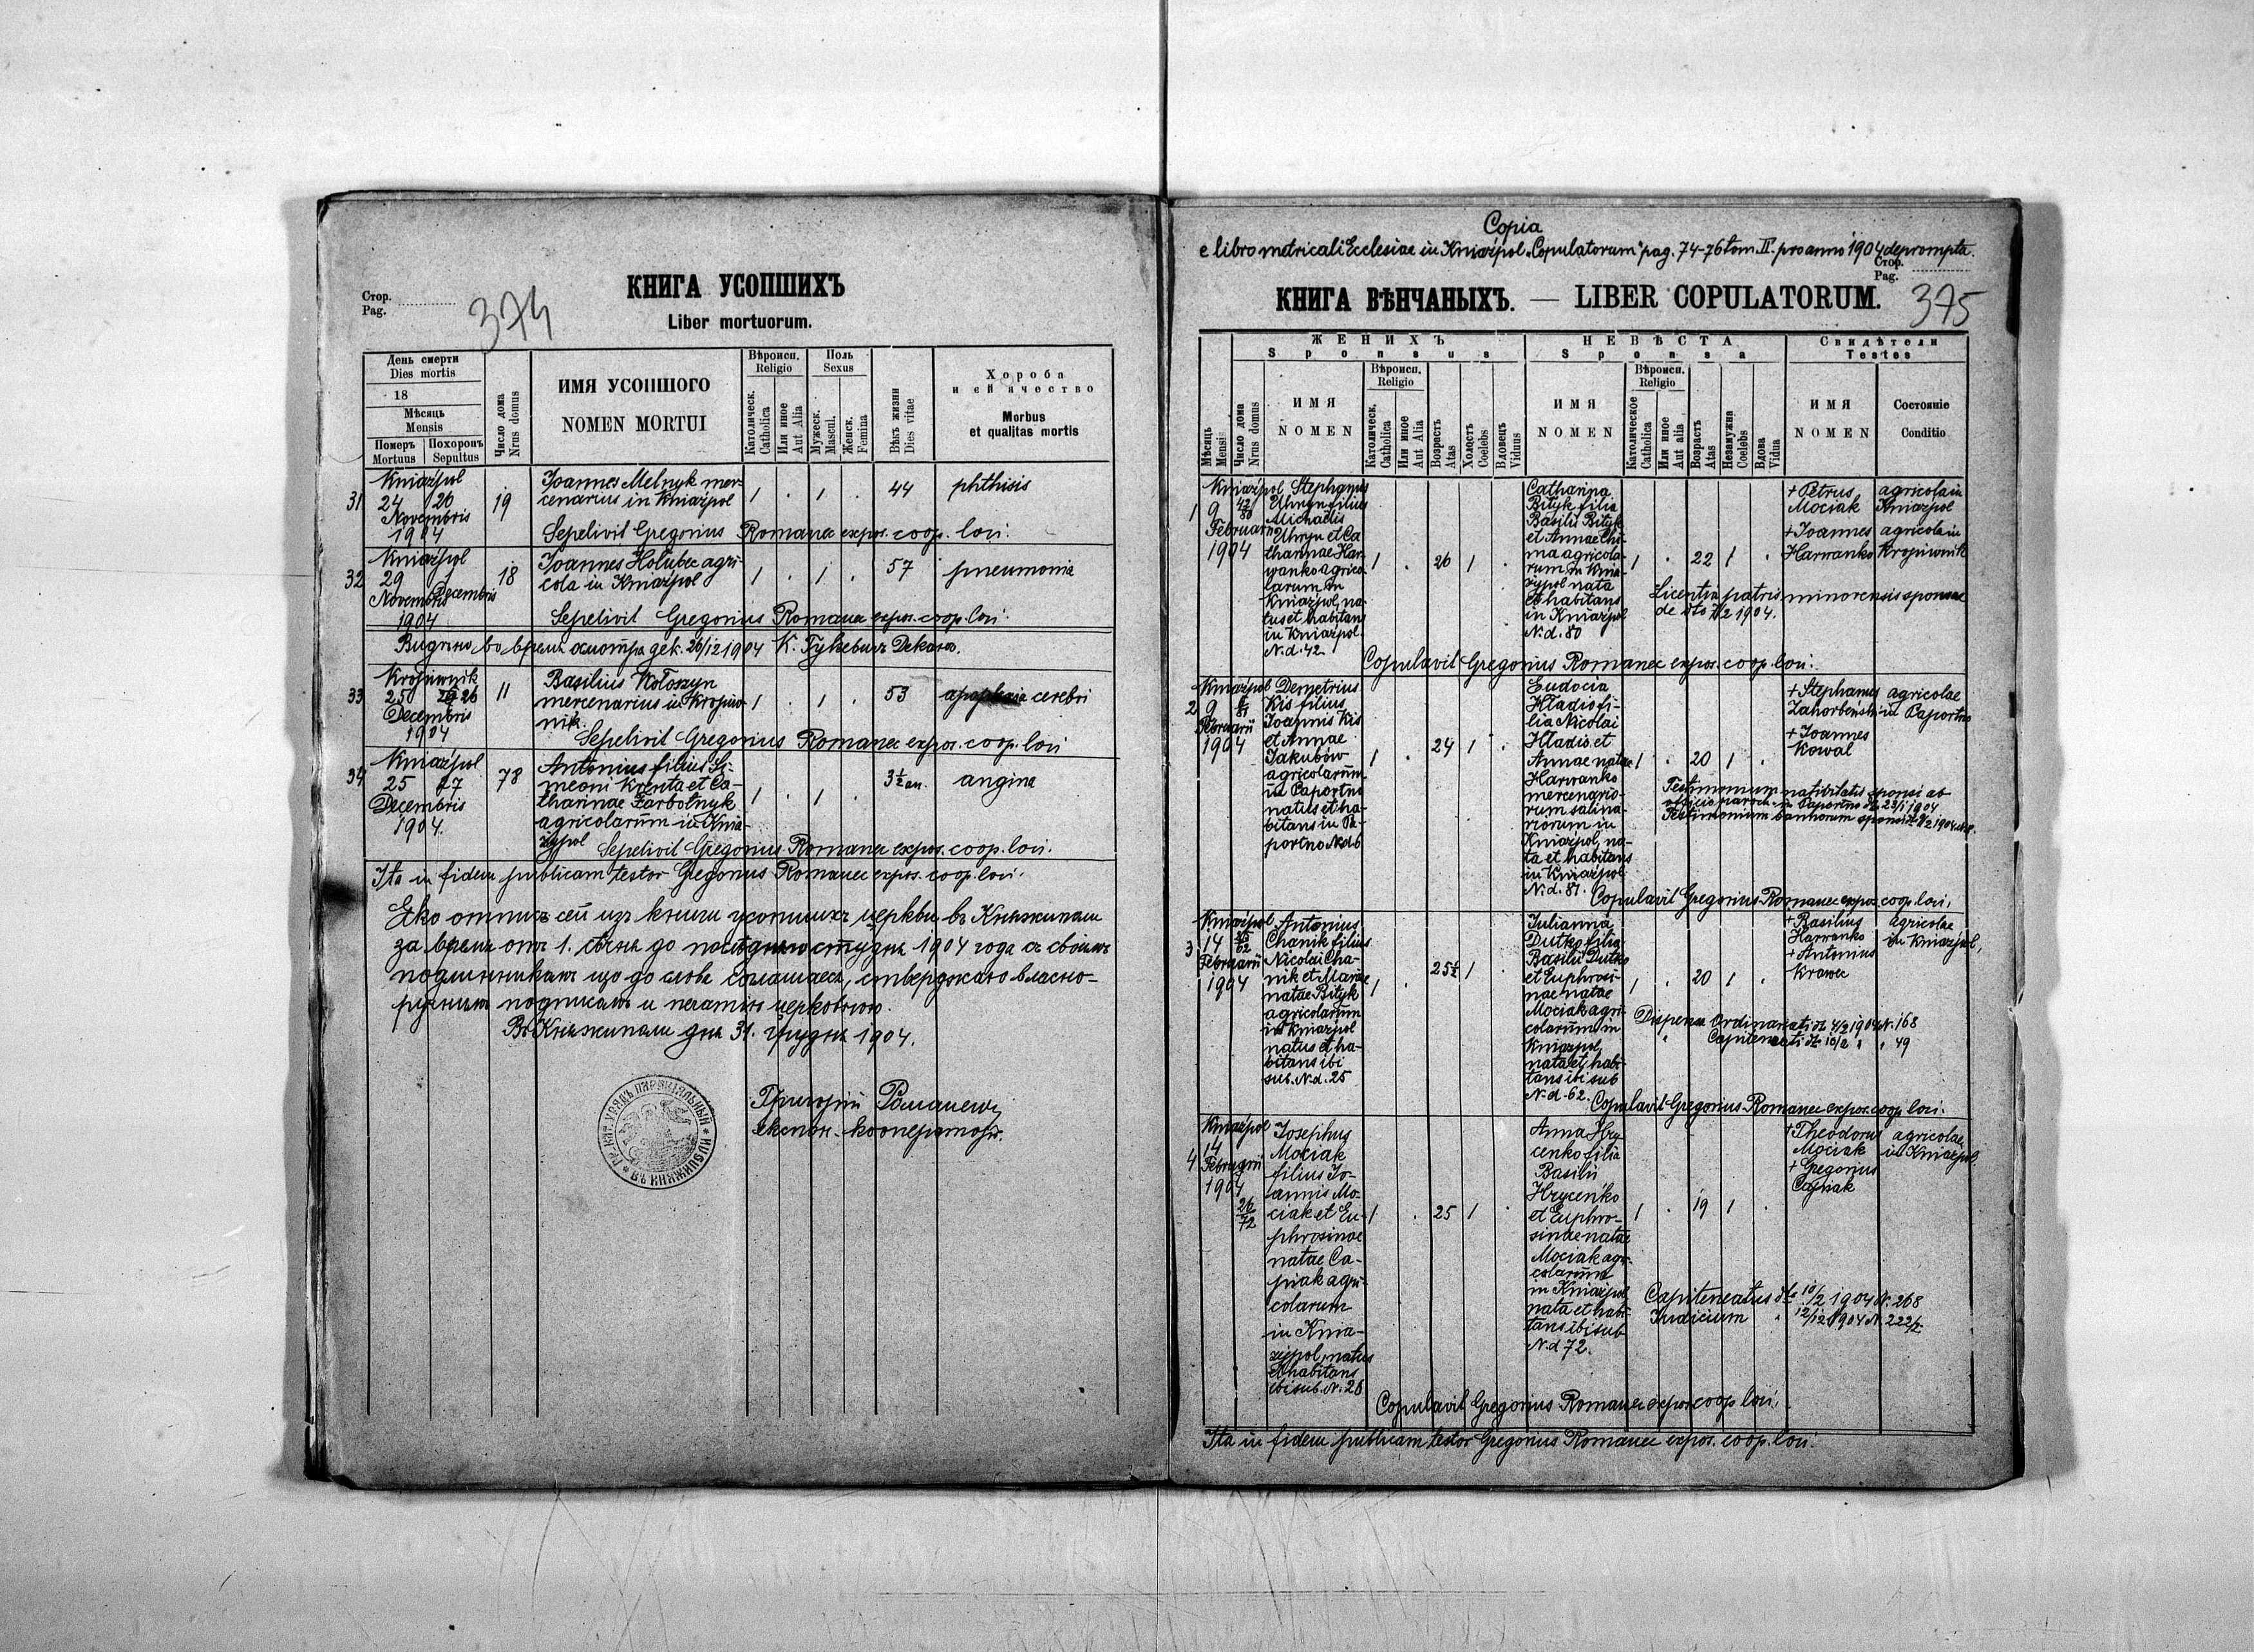 Стор.
Pag.
374
КНИГА УСОПШИХЪ
Liber mortuorum.
День смерти
Dies mortis
18
Мѣсяць
Mensis
Померъ
Mortuus
Похоронъ
Sepultus
Число дома
Nrus domus
ИМЯ УСОПШОГО
NOMEN MORTUI
Вѣроисп.
Religio
Католическ.
Catholica
Или иное
Aut Alia
Поль
Sexus
Мужеск.
Mascul.
Женск.
Femina
Вѣкъ жизни
Dies vitae
Хороба
и ей ячество
Morbus
et qualitas mortis
31
Kniaźpol
24 26
Novembris
1904
19
Joannes Melnyk mer-
cenarius in Kniaźpol
1 . 1 . 44 phthisis
Sepelivit Gregorius Romanec expos. coop. loci.
32
Kniaźpol
29 1
Novembris Decembris
1904
18
Joannes Holubec agri-
cola in Kniaźpol
1 . 1 . 57 pneumonia
Sepelivit Gregorius Romanec expos. coop. loci.
во время 20/12 1904 К. Декан.
33
Kropiwnik
25 26
Decembris
1904
11
Basilius Kołoszyn
mercenarius in Kropiw-
nik.
1 . 1 . 53 cerebri
Sepelivit Gregorius Romanec expos. coop. loci
34
Kniaźpol
25 27
Decembris
1904.
78
Antonius filius Si-
meoni Krenta et Ca-
tharinae Zarbotnyk
agricolarum in Knia-
źypol
1 . 1 . 3½ an. angina
Sepelivit Gregorius Romanec expos. coop. loci.
Ita in fidem publicam testor Gregorius Romanec expos. coop. loci.
Еко отпись сей изъ книги усопшихъ церкви въ Княжиполи
за время отъ 1. сѣчня до послѣдняго студня 1904 года съ своимъ
подлинникомъ що до слова соглашаесь, стверджаю власно-
ручнымъ подписомъ и печатію церковною.
Въ Княжиполи дня 31. грудня 1904.
Григорій Романец
експон. кооператоръ.
ГР. КАТ. УРЯДЪ ПАРОХІЯЛЬНЫЙ
ВЪ КНЯЖИПОЛИ
Copia
e libro metricali Ecclesiae in Kniaźpol „Copulatorum" pag. 74-76 tom. II. pro anno 1904 deprompta.
Стор.
Pag.
375
КНИГА ВѢНЧАНЫХЪ. — LIBER COPULATORUM.
ЖЕНИХЪ
Sponsus
НЕВѢСТА
Sponsa
Свидѣтели
Testes
Мѣсяць
Mensis
Число дома
Nrus domus
ИМЯ
NOMEN
Вѣроисп.
Religio
Католическ.
Catholica
Или иное
Aut Alia
Возрастъ
Atas
Холостъ
Coelebs
Вдовецъ
Viduus
ИМЯ
NOMEN
Вѣроисп.
Religio
Католическое
Catholica
Или иное
Aut alia
Возрастъ
Atas
Незамужна
Coelebs
Вдова
Vidua
ИМЯ
NOMEN
Состояніе
Conditio
1
Kniaźpol
9
Februarii
1904
42
80
Stephanus
Uhryn filius
Michaelis
Uhryn et Ca-
tharinae Har-
wanko agrico-
larum in
Kniaźpol, na-
tus et habitans
in Kniaźpol.
N. d. 42.
1 . 26 1 .
Catharina
Bityk filia
Basilii Bityk
et Annae Chi-
ma agricola-
rum in Knia-
źypol nata
et habitans
in Kniaźpol
N. d. 80
1 . 22 1 .
+ Petrus
Mociak
agricola in
Kniaźpol
+ Joannes
Harwanko
agricola in
Kropiwnik
Licentia patris minorensis sponsae
de dto 7/2 1904.
Copulavit Gregorius Romanec expos. coop. loci.
2
Kniaźpol
9
Februarii
1904
6
81
Demetrius
Kis filius
Joannis Kis
et Annae
Jakubów
agricolarum
in Paportno
natus et ha-
bitans in Pa-
portno N.d 6
1 . 24 1 .
Eudocia
Hładio fi-
lia Nicolai
Hładio et
Annae natae
Harwanko
mercenario-
rum salina-
riorum in
Kniaźpol, na-
ta et habitans
in Kniaźpol
N. d. 81.
1 . 20 1 .
+ Stephanus
Zahorbeński
agricolae
in Paportno
+ Joannes
Kowal
Testimonium nativitatis sponsi ab
officio paroch. in Paportno dto 23/1 1904
Testimonium bannorum sponsi
Copulavit Gregorius Romanec expos. coop. loci.
3
Kniaźpol
14
Februarii
1904
25
62
Antonius
Chanik filius
Nicolai Cha-
nik et Mariae
natae Bityk
agricolarum
in Kniaźpol
natus et ha-
bitans ibi
sub. N.d. 25
1 . 25½ 1 .
Julianna
Dutko filia
Basilii Dutko
et Euphrosi-
nae natae
Mociak agri-
colarum in
Kniaźpol,
nata et habi-
tans ibi sub
N. d. 62.
1 . 20 1 .
+ Basilius
Harwanko
agricolae
in Kniaźpol,
+ Antonius
Krawec
Dispensa Ordinariati dto 4/2 1904 N. 168
" Capiteneati dto 10/2 " " 49
Copulavit Gregorius Romanec expos. coop. loci.
4
Kniaźpol
14
Februarii
1904
26
72
Josephus
Mociak
filius Jo-
annis Mo-
ciak et Eu-
phrosinae
natae Ca-
piak agri-
colarum
in Knia-
źypol, natus
et habitans
ibi sub. N. 26
1 . 25 1 .
Anna Hry-
cenko filia
Basilii
Hrycenko
et Euphro-
sinae natae
Mociak agri-
colarum
in Kniaźpol
nata et habi-
tans ibi sub
N. d 72.
1 . 19 1 .
+ Theodorus
Mociak
agricolae
in Kniaźpol.
+ Gregorius
Capiak
Capiteneatus dto 10/2 1904 N. 268
Judicium " 12/12 1904 N. 222/2
Copulavit Gregorius Romanec expos. coop. loci.
Ita in fidem publicam testor Gregorius Romanec expos. coop. loci.